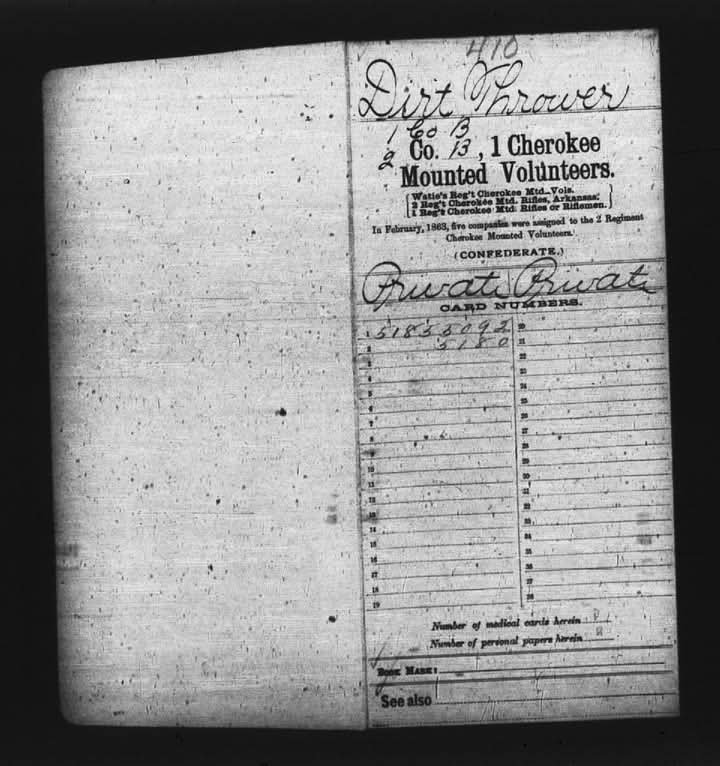 410
Dirt Thrower
1 Co B
2 Co. B, 1 Cherokee
Mounted Volunteers.
Watie's Reg't Cherokee Mtd. Vols.
2 Reg't Cherokee Mtd. Rifles, Arkansas.
1 Reg't Cherokee Mtd. Rifles or Riflemen.
In February, 1863, five companies were assigned to the 2 Regiment
Cherokee Mounted Volunteers.
(CONFEDERATE.)
Private Private
CARD NUMBERS.
1 51855092 20
2 5180 21
3 22
4 23
5 24
6 25
7 26
8 27
9 28
10 29
11 30
12 31
13 32
14 33
15 34
16 35
17 36
18 37
19 38
Number of medical cards herein
Number of personal papers herein
BOOK MARK:
See also